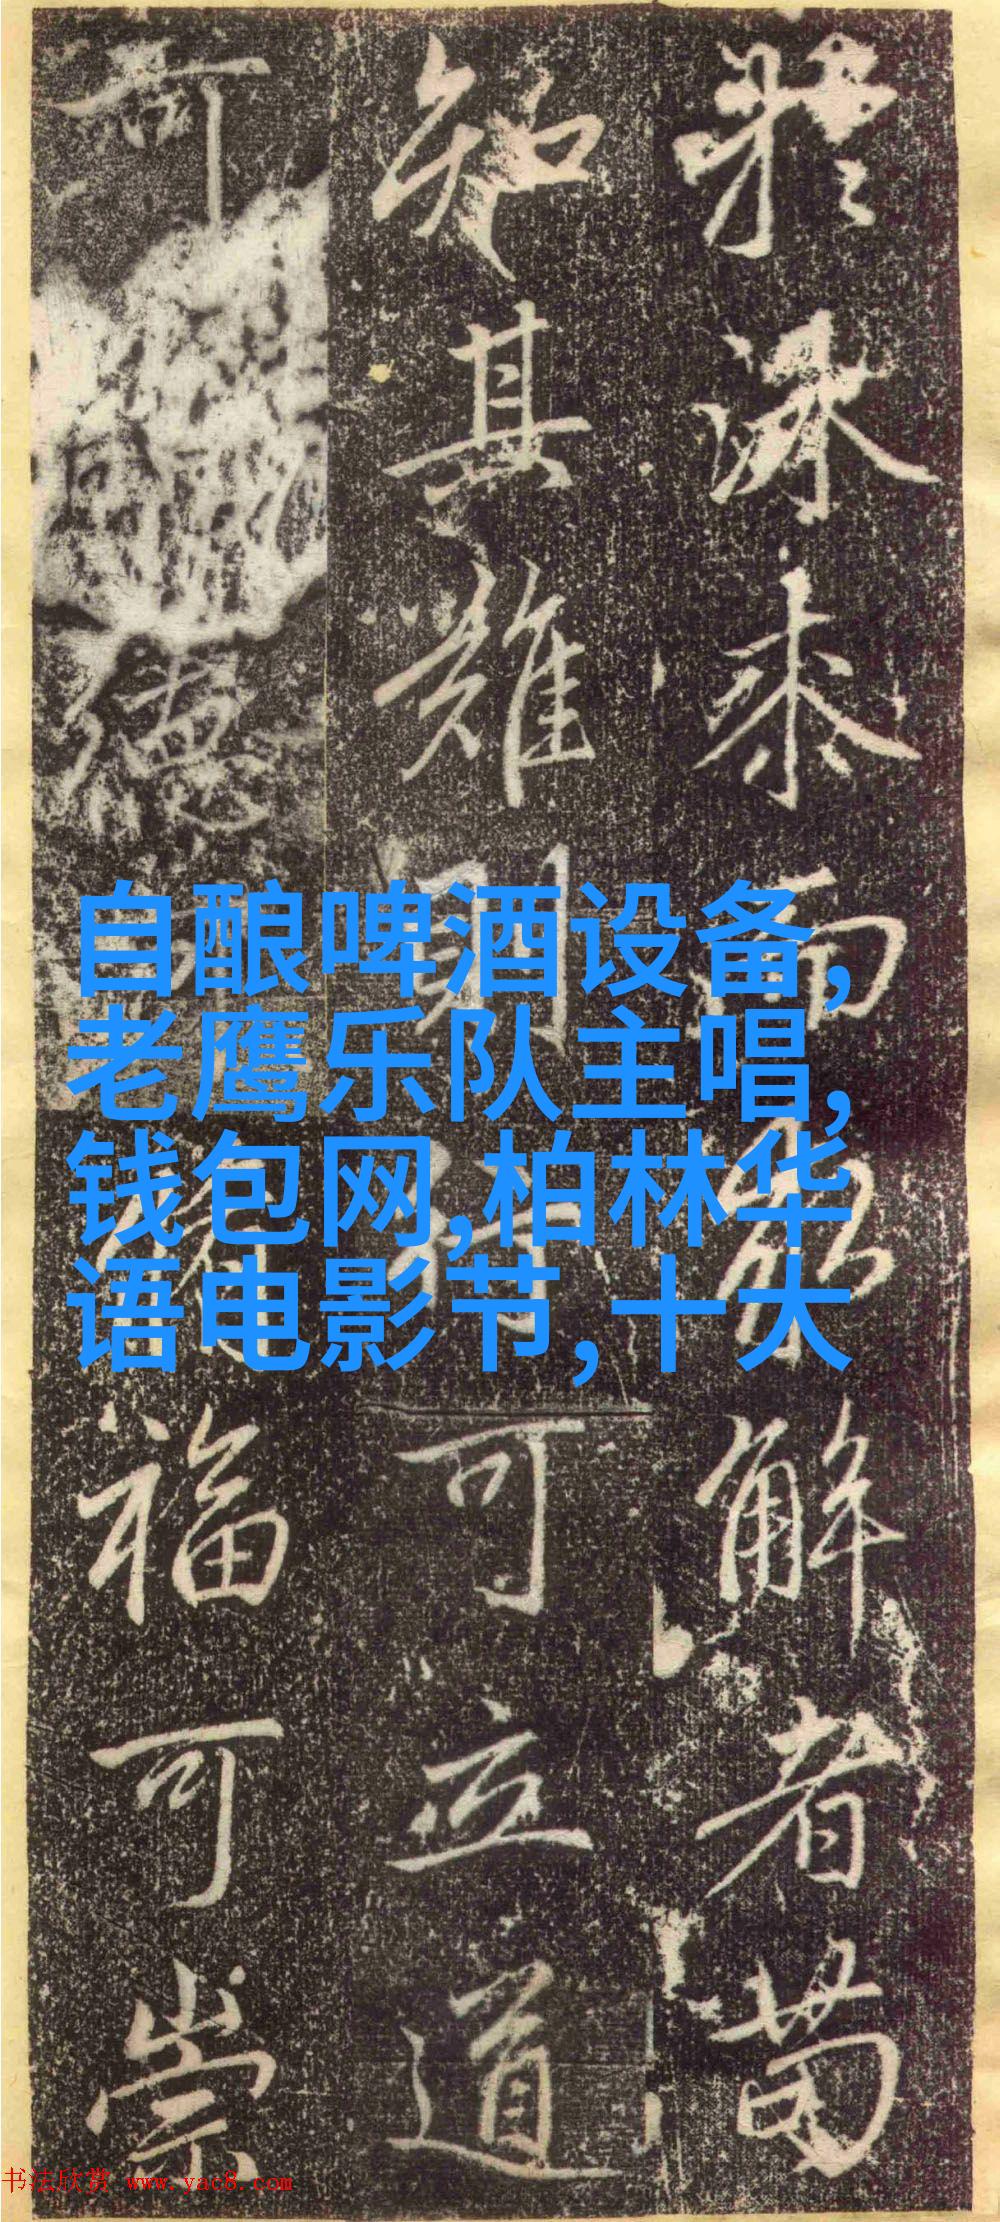 而能解者苟
知其難則行可立道
可德福可崇
自酿啤酒设备,
老鹰乐队主唱,
钱包网,柏林华
语电影节,十大
书法欣赏 www.yac8.com